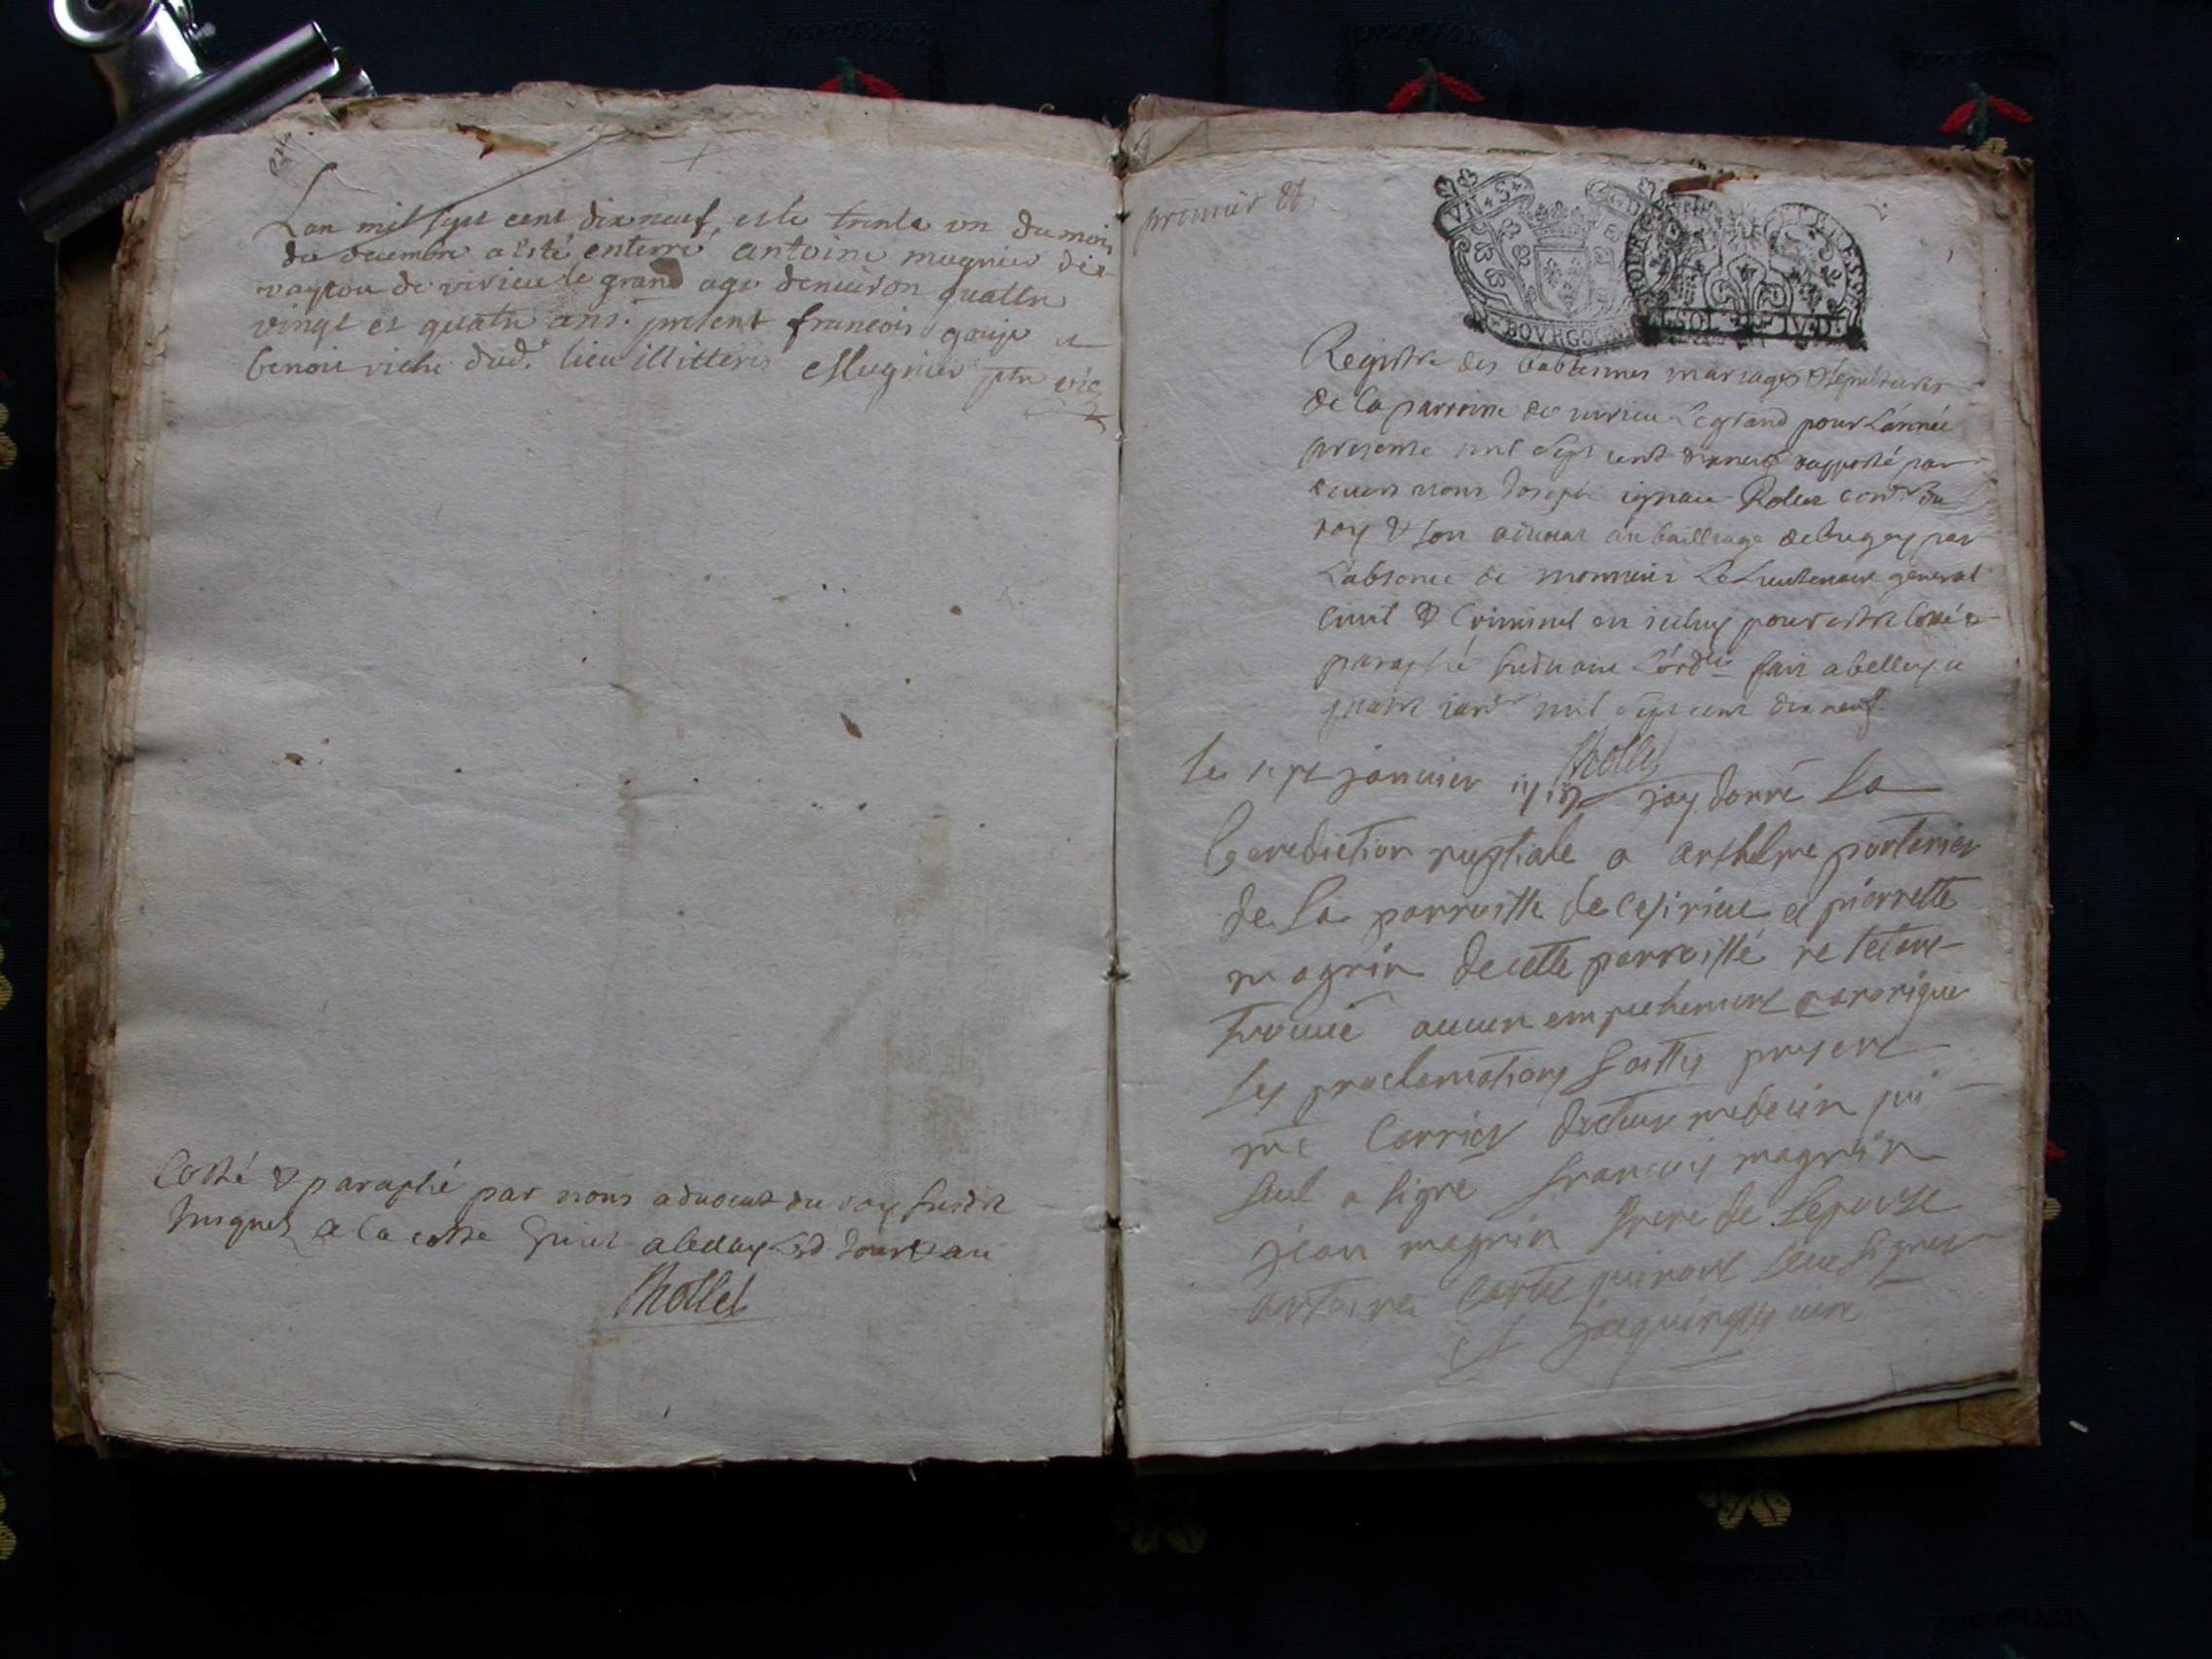 Lan mil sept cent dix neuf, et le trente un du mois
de decembre a esté enterré antoine mugnier dit
de virieu le grand agé denuiron quattre
vingt et quatre ans. present francois gouje et
benoit viche dud. lieu illitteres Mugnier ptre vic
Cotté & paraphé par nous aduocat du roy susdit
a la cotte huict abelley led. jour & an
Rollet
premier
VN S
BOVRGOG
SOL
Registre des babtesmes mariages & sepultures
de la parroisse de virieu Le grand pour L'année
presente mil sept cent dixneuf rapporté par
deuers nous Joseph ignace Rollet cons.er du
roy & son aduocat au bailliage de bugey par
L'absence de monsieur Le Lieutenant general
ciuil & Criminel en iceluy pour estre cotté &
paraphé suiuant L'ord.ce fait abelley ce
quatre janv.r mil sept cent dix neuf.
Rollet
le sept januier 1719 jay donné La
benediction nuptiale a anthelme pontanier
de La parroisse de ceyzirieu et pierrette
magnin de cette parroisse ne setant
trouué aucun empechement canonique
les proclamations faittes present
mre Carrier docteur medecin qui
seul a signé francois magnin
jean magnin frere de Lepouse
antoine qui nont sceu signer
curé